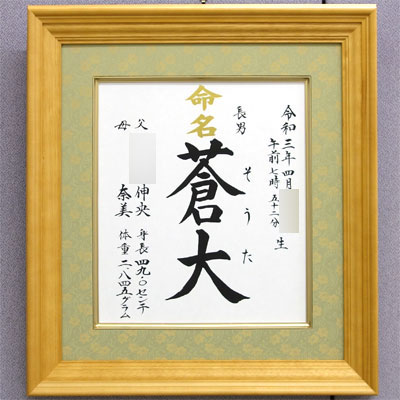 命名
令和三年四月
午前七時五十二分
生
長男
そうた
蒼大
父
伸央
母
奈美
身長四九.〇センチ
体重二.八四五グラム